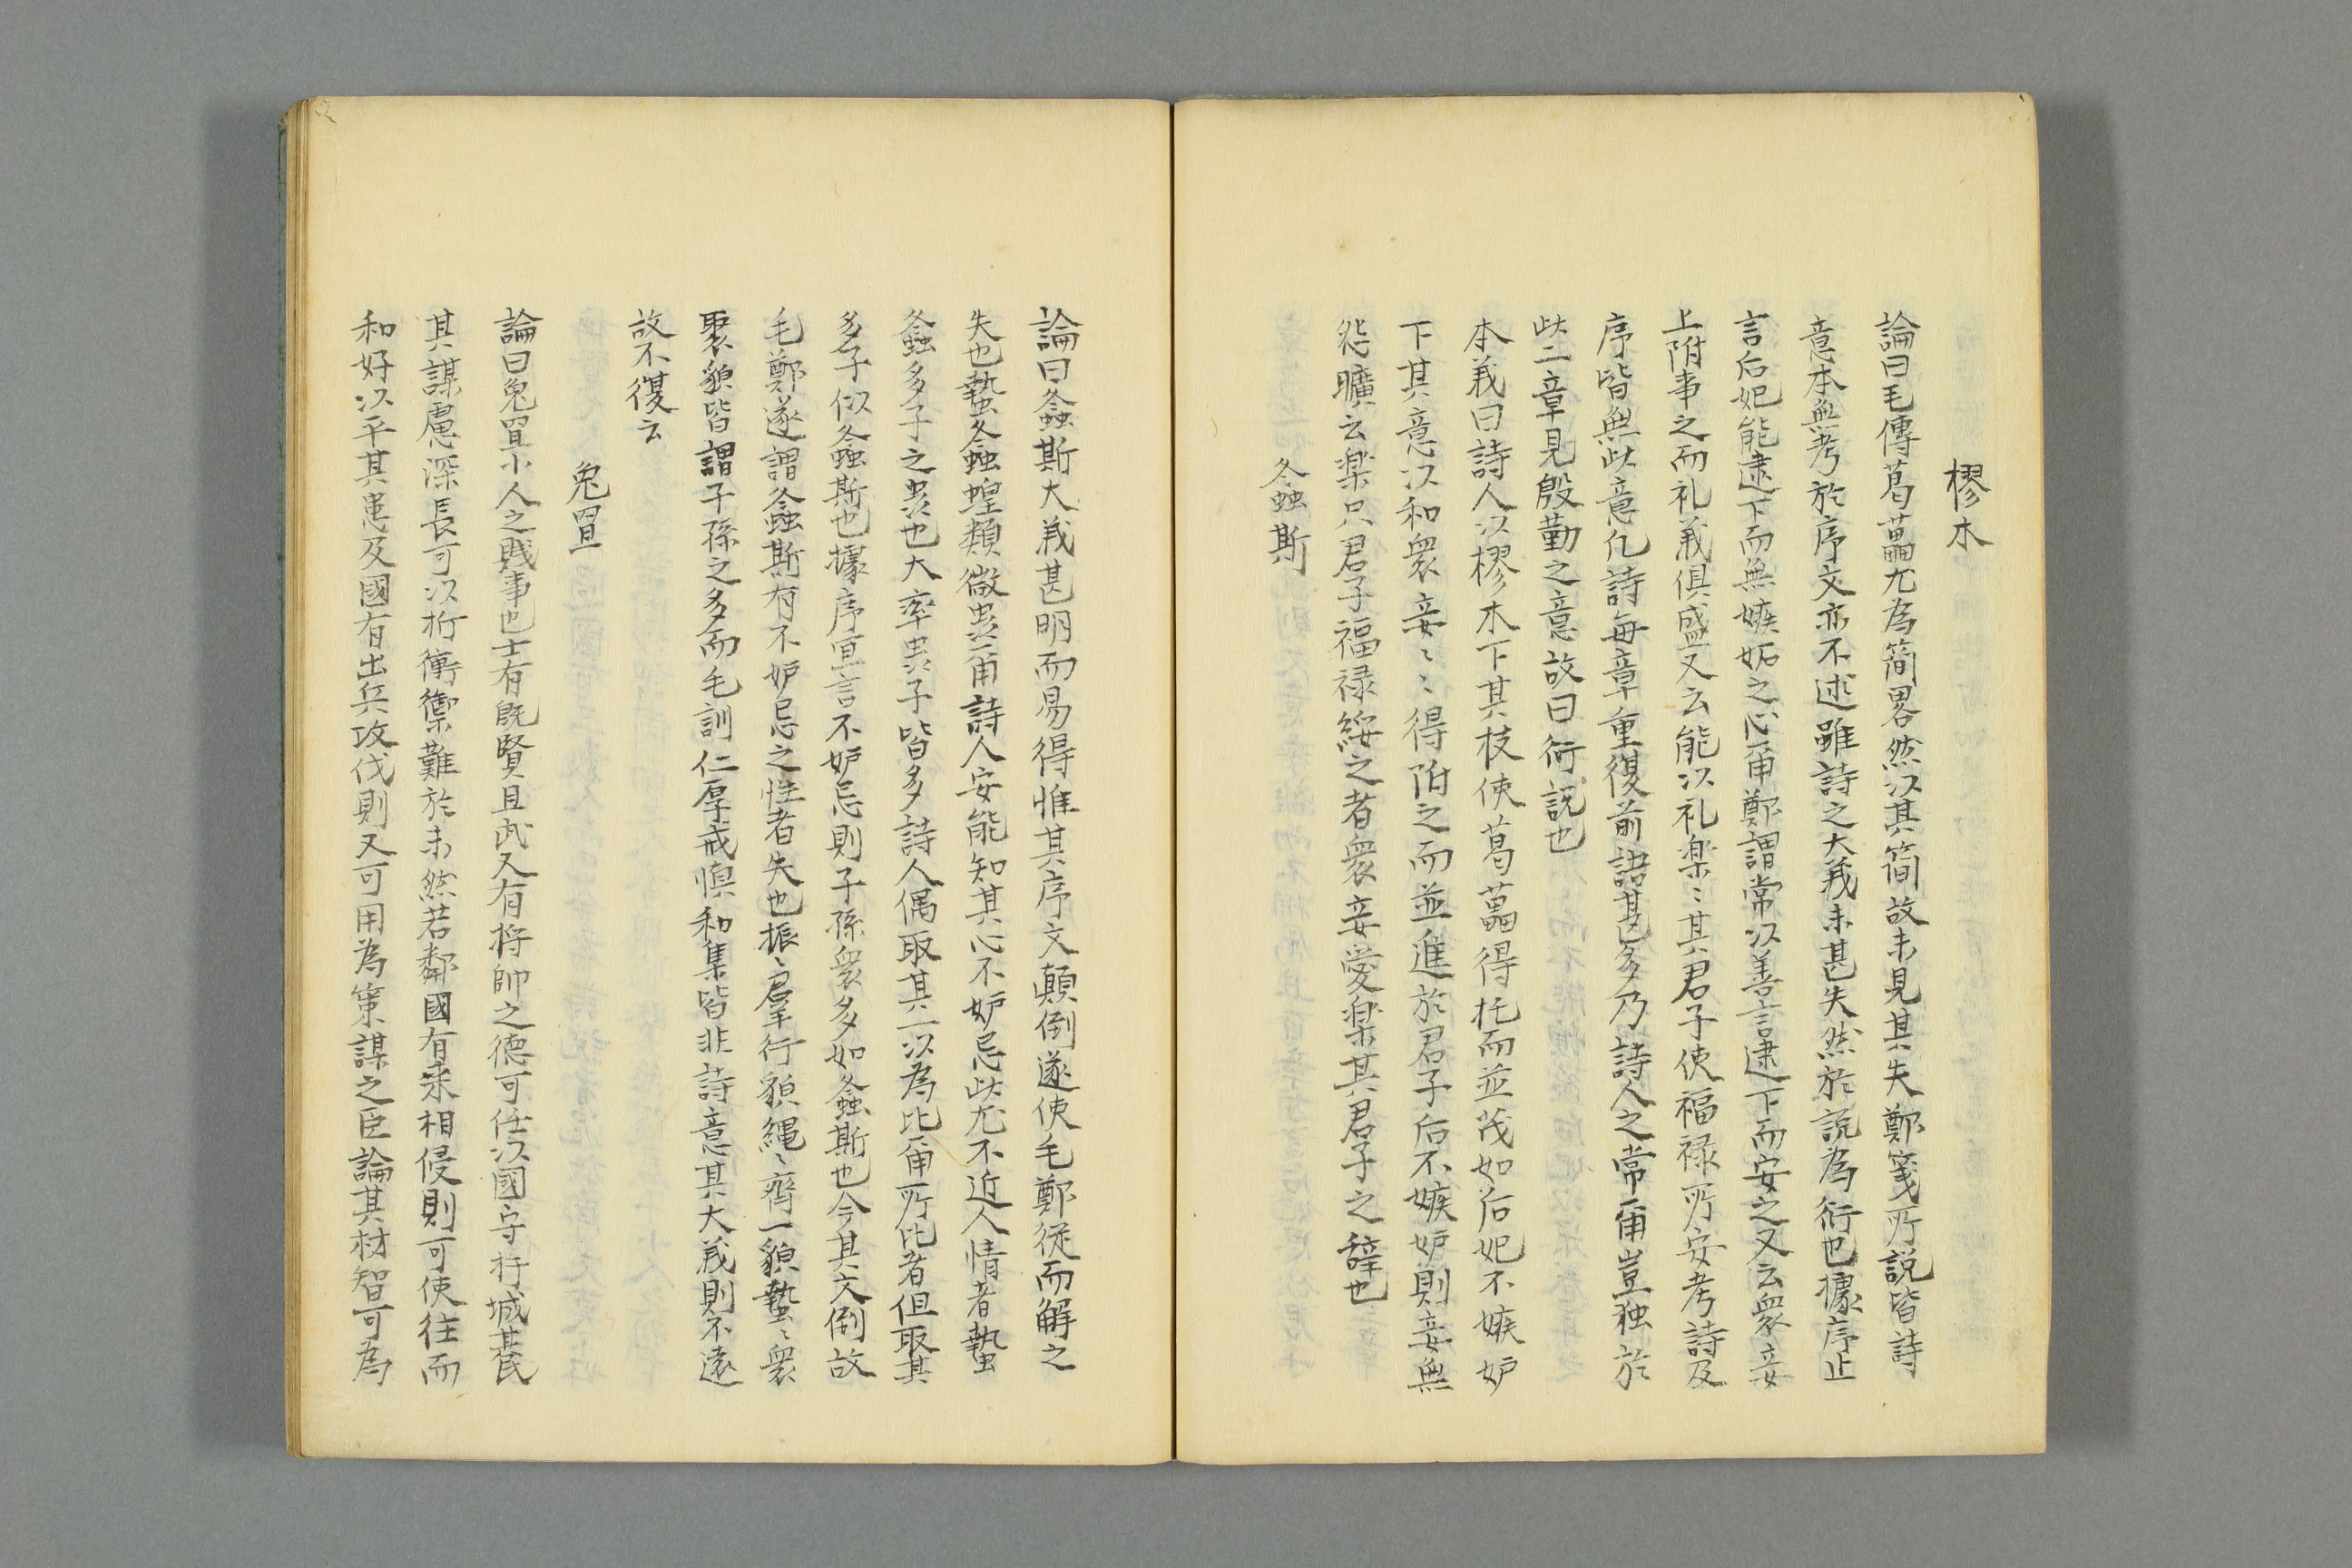 樛木
論曰毛傳葛藟尤為簡畧然以其簡故未見其失鄭箋所説皆詩
意本無考於序文亦不述雖詩之大義未甚失然於説為衍也據序止
言后妃能逮下而無嫉妬之心爾鄭謂常以善言逮下而安之又云衆妾
上附事之而礼義俱盛又云能以礼楽〻其君子使福禄所安考詩及
序皆無此意凡詩每章重復前語甚多乃詩人之常爾豈独於
此二章見殷勤之意故曰衍説也
本義曰詩人以樛木下其枝使葛藟得托而並茂如后妃不嫉妒
下其意以和衆妾〻得附之而並進於君子后不嫉妒則妾無
怨曠云楽只君子福禄綏之者衆妾愛楽其君子之辞也
螽斯
論曰螽斯大義甚明而易得惟其序文顛倒遂使毛鄭従而解之
失也蟄螽蝗類微虫爾詩人安能知其心不妒忌此尤不近人情者蟄
螽多子之虫也大率虫子皆多詩人偶取其一以為比爾所比者但取其
多子似螽斯也據序宜言不妒忌則子孫衆多如螽斯也今其文倒故
毛鄭遂謂螽斯有不妒忌之性者失也振〻羣行貌繩〻齊一貌蟄〻衆
聚貌皆謂子孫之多而毛訓仁厚戒慎和集皆非詩意其大義則不遠
故不復云
兔罝
論曰兔罝小人之賤事也士有既賢且武又有将帥之德可任以國守扞城其民
其謀慮深長可以折衝禦難於未然若鄰國有来相侵則可使往而
和好以平其患及國有出兵攻伐則又可用為策謀之臣論其材智可為